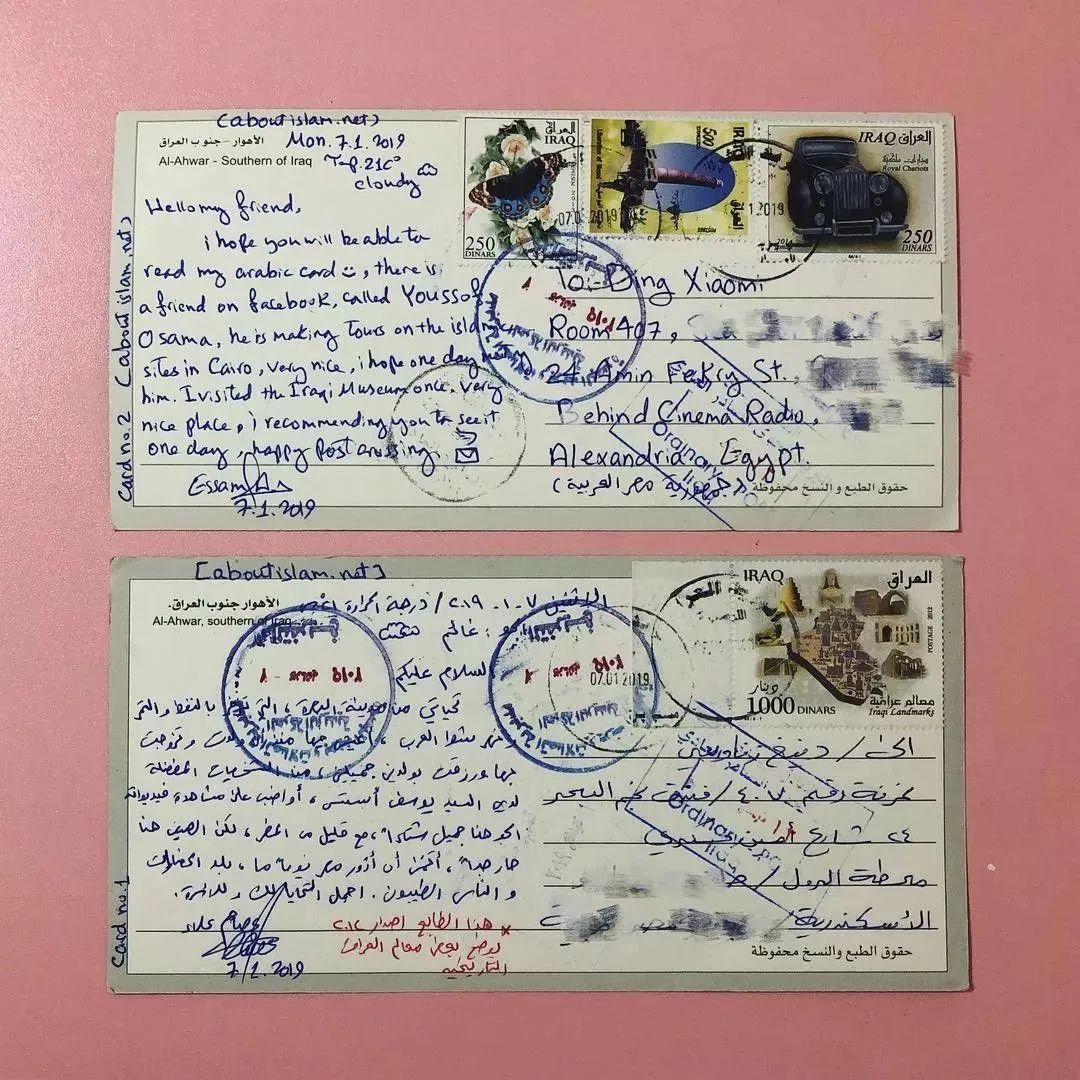 (aboutislam.net)
الأهوار - جنوب العراق
Mon. 7.1.2019
Al-Ahwar - Southern of Iraq
Temp. 21C°
cloudy
Hello my friend,
i hope you will be able to
read my arabic card, there is
a friend on facebook, called Youssof
Osama, he is making Tours on the isla
sites in Cairo, very nice, i hope one day
him. I visited the Iraqi Museum once, very
nice place, i recommending you to see it
one day, happy Postcrossing.
Essam A.
7.1.2019
Card no. 2 (aboutislam.net)
العراق
IRAQ
250
DINARS
POSTAGE
IRAQ
500
DINARS
العراق
POSTAGE
IRAQ العراق
سيارات ملكية
Royal Chariots
250
DINARS
07.01.2019
1 2019
To:- Ding Xiaomi
Room 407,
24 Amin Fekry St.,
Behind Cinema Radio,
Alexandria Egypt.
(جمهورية مصر العربية)
Ordinary
حقوق الطبع والنسخ محفوظة
[aboutislam.net]
الأهوار جنوب العراق.
الاثنين ٧-١-٢٠١٩ / درجة الحرارة
Al-Ahwar, southern of Iraq
الجو: غائم
السلام عليكم
تحياتي من مدينة البصرة، التي بالنفط والتمر
شط العرب، وتزوجت
بها ورزقت بولدين جميلين، من الشخصيات المفضلة
لدي السيد يوسف أستس، أواظب على مشاهدة فيديوهاته
الجو هنا جميل شتاءً، مع قليل من المطر، لكن الصيف هنا
حار جداً، أتمنى أن أزور مصر يوما ما، بلد الحضارات
و الناس الطيبون. اجمل التحايا لك وللاسرة.
عصام علاء
7/1.2019
* هذا الطابع اصدار ٢٠١٢
يوضح بعض معالم العراق
التاريخية
Card no. 1
IRAQ
العراق
POSTAGE 2012
دينار
1000 DINARS
معالم عراقية
Iraqi Landmarks
07.01 2019
الى / دينغ
غرفة رقم ٤٠٧ /
٢٤ شارع أمين فكري
محطة الرمل /
الاسكندرية
Ordinary
حقوق الطبع والنسخ محفوظة